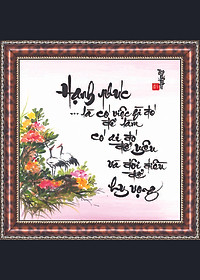 Hạnh phúc
... là có việc gì đó
để làm
có ai đó
để yêu
và đôi điều
để
hy vọng